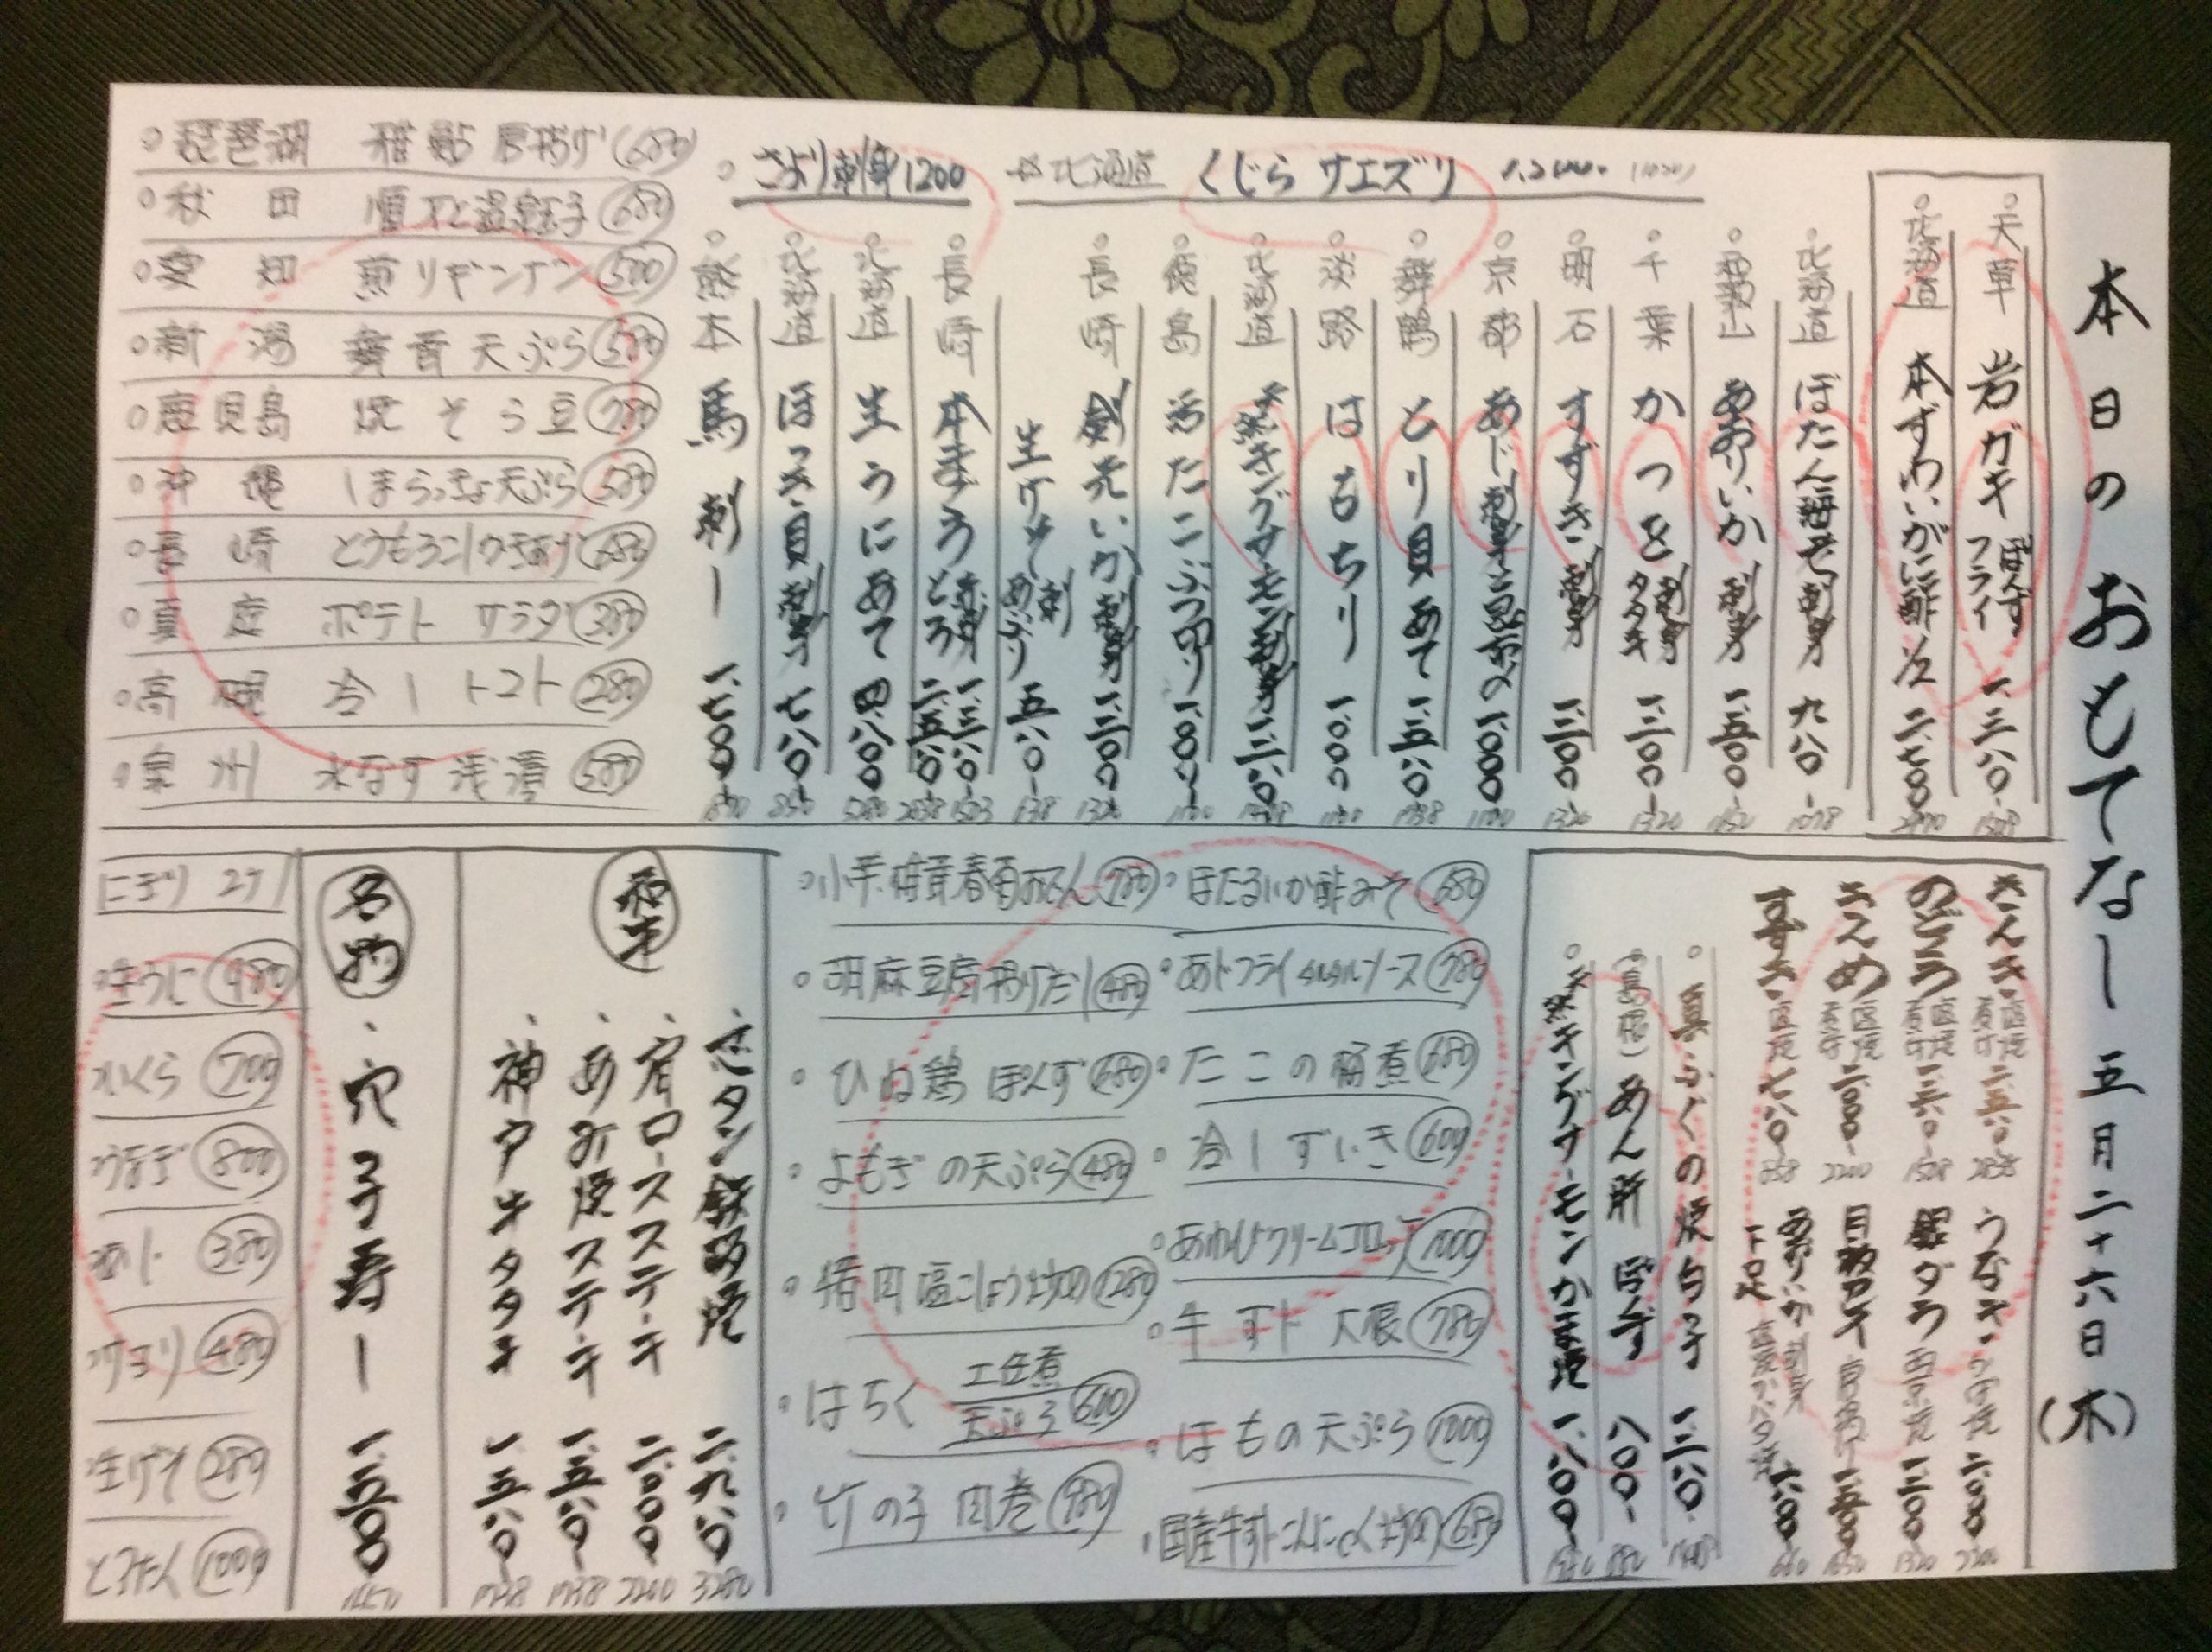 本日のおもてなし 五月二十六日(木)
天草 岩ガキ ぽんず フライ 一、三八〇-
北海道 本ずわいがに酢 二、七〇〇-
北海道 ぼたん海老 刺身 九八〇-
和歌山 あおりいか 刺身 一、五〇〇-
千葉 かつを 刺身 タタキ 一、二〇〇-
明石 すずき 刺身 一、二〇〇-
京都 あじ 刺身 一、〇〇〇
舞鶴 とり貝 あて 一、五八〇-
淡路 はもちり 一、〇〇〇
北海道 天然キングサーモン刺身
徳島 活たこぶつ切り 一、〇〇〇-
長崎 剣先いか 刺身 一、二〇〇-
生げそ 刺 あぶり 五八〇-
長崎 本まぐろ 赤身 一、三八〇- とろ 二、五八〇-
北海道 生うに あて 四、八〇〇-
北海道 ほっき貝 刺身 七八〇-
熊本 馬刺し 一、七〇〇-
北海道 くじら サエズリ
さより刺身 1200
琵琶湖 稚鮎 唐揚げ 680
秋田 温泉玉子 680
愛知 煎りギンナン 500
新潟 舞茸天ぷら 580
鹿児島 焼そら豆 780
沖縄 しまらっきょ天ぷら 580
長崎 とうもろこしかきあげ 680
ポテトサラダ 380
高槻 冷しトマト 280
泉州 水なす浅漬 580
きんき 塩焼 煮付 二、五八〇-
のどぐろ 塩焼 煮付
塩焼 煮付 二、〇〇〇-
すずき 塩焼 七八〇-
うなぎ 二、〇〇〇-
銀ダラ 西京焼 一、二〇〇-
あおりいか 下足
真ふぐの焼白子
(島根) あん肝 ぽんず 八〇〇-
天然キングサーモンかま焼
ほたるいか酢みそ 680
あじフライ タルタルソース 780
たこの桶煮 680
冷しずいき 600
あわびクリームコロッケ 1000
牛すじ大根 780
はもの天ぷら 1000
国産牛すじこんにゃく 680
小芋 椎茸 春菊おでん 780
胡麻豆腐揚げだし 480
ひね鶏 ぽんず 680
よもぎの天ぷら 480
猪肉塩こしょう 1280
はちく 土佐煮 天ぷら 600
竹の子肉巻 980
和牛
芯タン鉄板焼 二、九八〇-
肩ロースステーキ 二、〇〇〇-
あみ焼ステーキ 一、五八〇-
神戸牛タタキ 一、五八〇-
名物
穴子寿し 一、五〇〇
にぎり 2ケ
生うに 980
いくら 700
うなぎ 800
380
サヨリ 480
生げそ 280
とろたく 1000